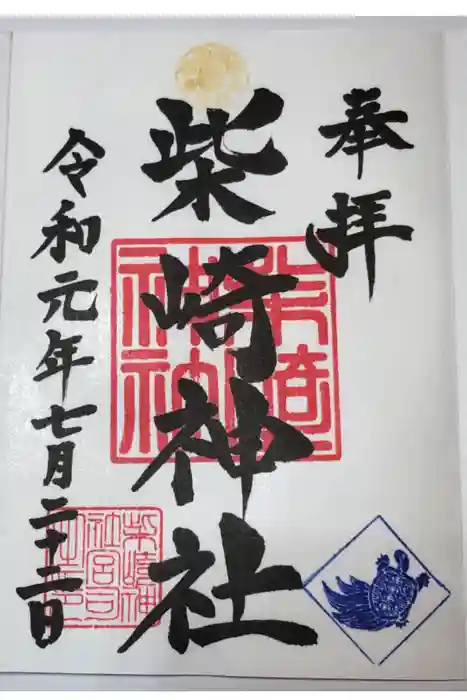 奉拝
柴崎神社
令和元年七月二十二日
柴崎神
社宮司
之印